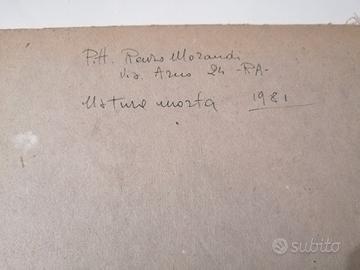 P.H. Renzo Morandi
Via Arno 24 -RA-
Natura morta 1981
subito